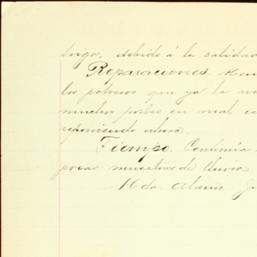 trigo, debido á la calidad
Reparaciones.
los potreros que ya la
muchos postes en mal
reponiendo ahora.
Tiempo. Continúa
pocas muestras de lluvia